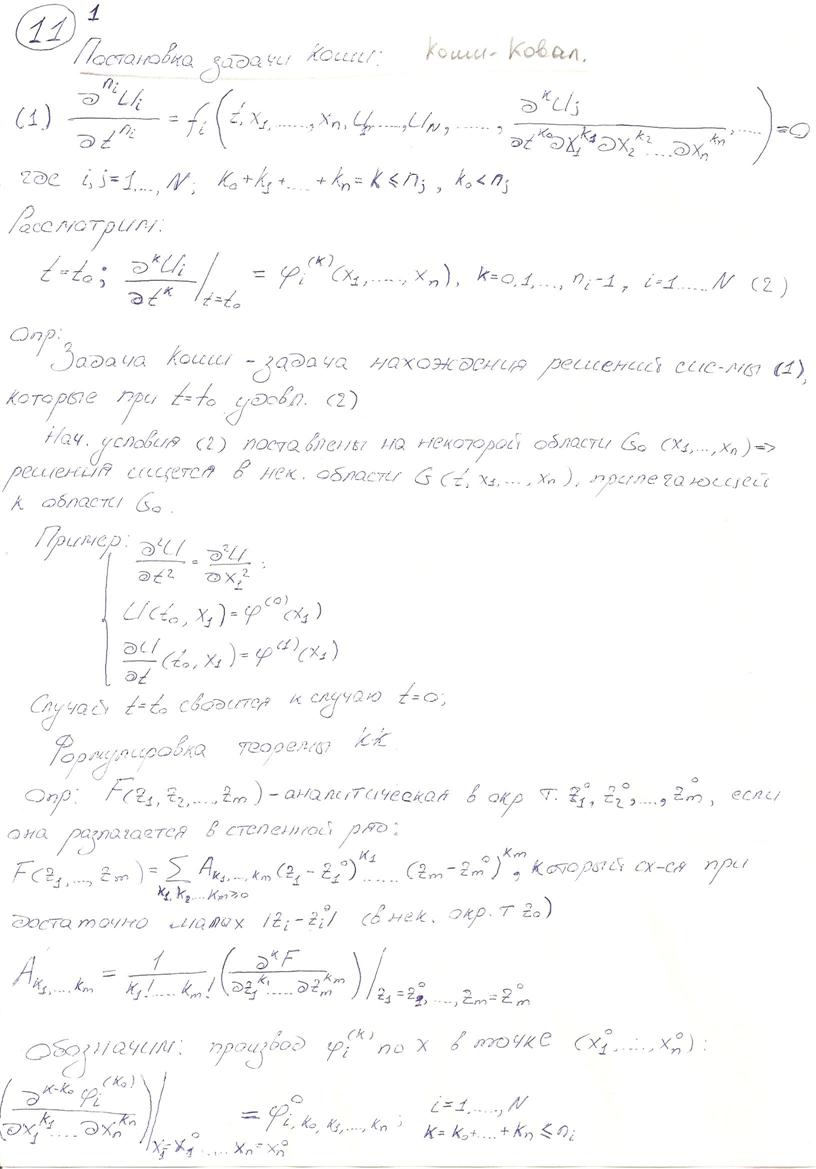 11 1
Постановка задачи Коши: Коши-Ковал.
(1) ∂^{n_i}U_i / ∂t^{n_i} = f_i (t, x_1, ......, x_n, U_1, ...., U_N, ......, ∂^k U_j / ∂t^{k_0}∂x_1^{k_1}∂x_2^{k_2}....∂x_n^{k_n}, .....) = 0
где i,j=1...., N; k_0+k_1+....+k_n=k≤n_j, k_0<n_j
Рассмотрим:
t=t_0; ∂^k U_i / ∂t^k |_{t=t_0} = φ_i^{(k)}(x_1, ....., x_n), k=0,1,..., n_i-1, i=1.....N (2)
Опр:
Задача Коши - задача нахождения решений сис-мы (1),
которые при t=t_0 удовл. (2)
Нач. условия (2) поставлены на некоторой области G_0 (x_1,...,x_n) =>
решения ищется в нек. области G (t, x_1, ..., x_n), прилегающей
к области G_0.
Пример: ∂²U / ∂t² = ∂²U / ∂x_1² :
U(t_0, x_1) = φ^{(0)}(x_1)
∂U / ∂t (t_0, x_1) = φ^{(1)}(x_1)
Случай t=t_0 сводится к случаю t=0;
Формулировка теоремы КК.
Опр: F(z_1, z_2, ..., z_m) - аналитическая в окр т. z_1^0, z_2^0, ..., z_m^0, если
она разлагается в степенной ряд:
F(z_1, ..., z_m) = ∑_{k_1,k_2....k_m≥0} A_{k_1,...,k_m} (z_1-z_1^0)^{k_1} ...... (z_m-z_m^0)^{k_m}, который сх-ся при
достаточно малых |z_i-z_i^0| (в нек. окр. т z_0)
A_{k_1,....k_m} = 1 / k_1!.....k_m! (∂^k F / ∂z_1^{k_1}.....∂z_m^{k_m}) |_{z_1=z_1^0, ...., z_m=z_m^0}
Обозначим: производ φ_i^{(k)} по x в точке (x_1^0, ...., x_n^0):
(∂^{k-k_0} φ_i^{(k_0)} / ∂x_1^{k_1}....∂x_n^{k_n}) |_{x_1=x_1^0 ..... x_n=x_n^0} = φ^0_{i, k_0, k_1, ..., k_n}; i=1,....., N
k=k_0+....+k_n≤n_i